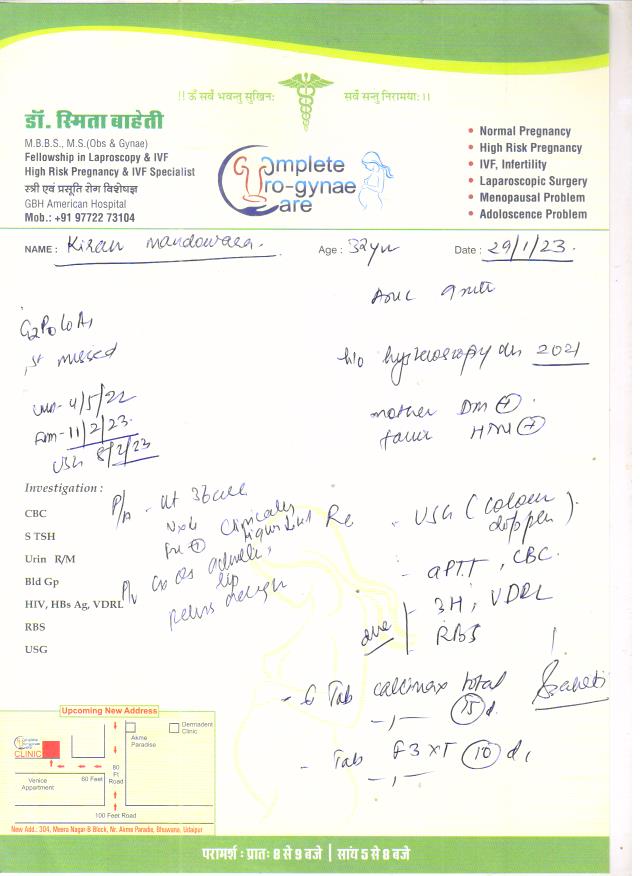 !! ॐ सर्वे भवन्तु सुखिनः सर्वे सन्तु निरामयाः !!
डॉ. स्मिता बाहेती
M.B.B.S., M.S.(Obs & Gynae)
Fellowship in Laproscopy & IVF
High Risk Pregnancy & IVF Specialist
स्त्री एवं प्रसूति रोग विशेषज्ञ
GBH American Hospital
Mob.: +91 97722 73104
Complete
Uro-gynae
Care
• Normal Pregnancy
• High Risk Pregnancy
• IVF, Infertility
• Laparoscopic Surgery
• Menopausal Problem
• Adoloscence Problem
NAME : Kiran Mandowara. Age : 32yr Date : 29/1/23.
G2P0L0A1
1st missed
h/o hysteroscopy 2021
LMP- 4/5/22
11/2/23.
USG 8/2/23
mother DM +
HTN +
Investigation :
CBC
S TSH
Urin R/M
Bld Gp
HIV, HBs Ag, VDRL
RBS
USG
P/A - Ut
Clinically
liquor
P/V Cx Os
lip
Pelvis
- USG (Colour doppler).
- APTT, CBC.
3H, VDRL
RBS
- Tab calcimax total 15 d.
Baheti
- Tab F3 XT 10 d,
Upcoming New Address
Complete
Uro-gynae
Care
CLINIC
Akme Paradise
Dermadent Clinic
Venice Appartment
60 Feet
80 Ft Road
100 Feet Road
New Add.: 304, Meera Nagar B Block, Nr. Akme Paradis, Bhuwana, Udaipur
परामर्श : प्रातः 8 से 9 बजे | सांय 5 से 8 बजे